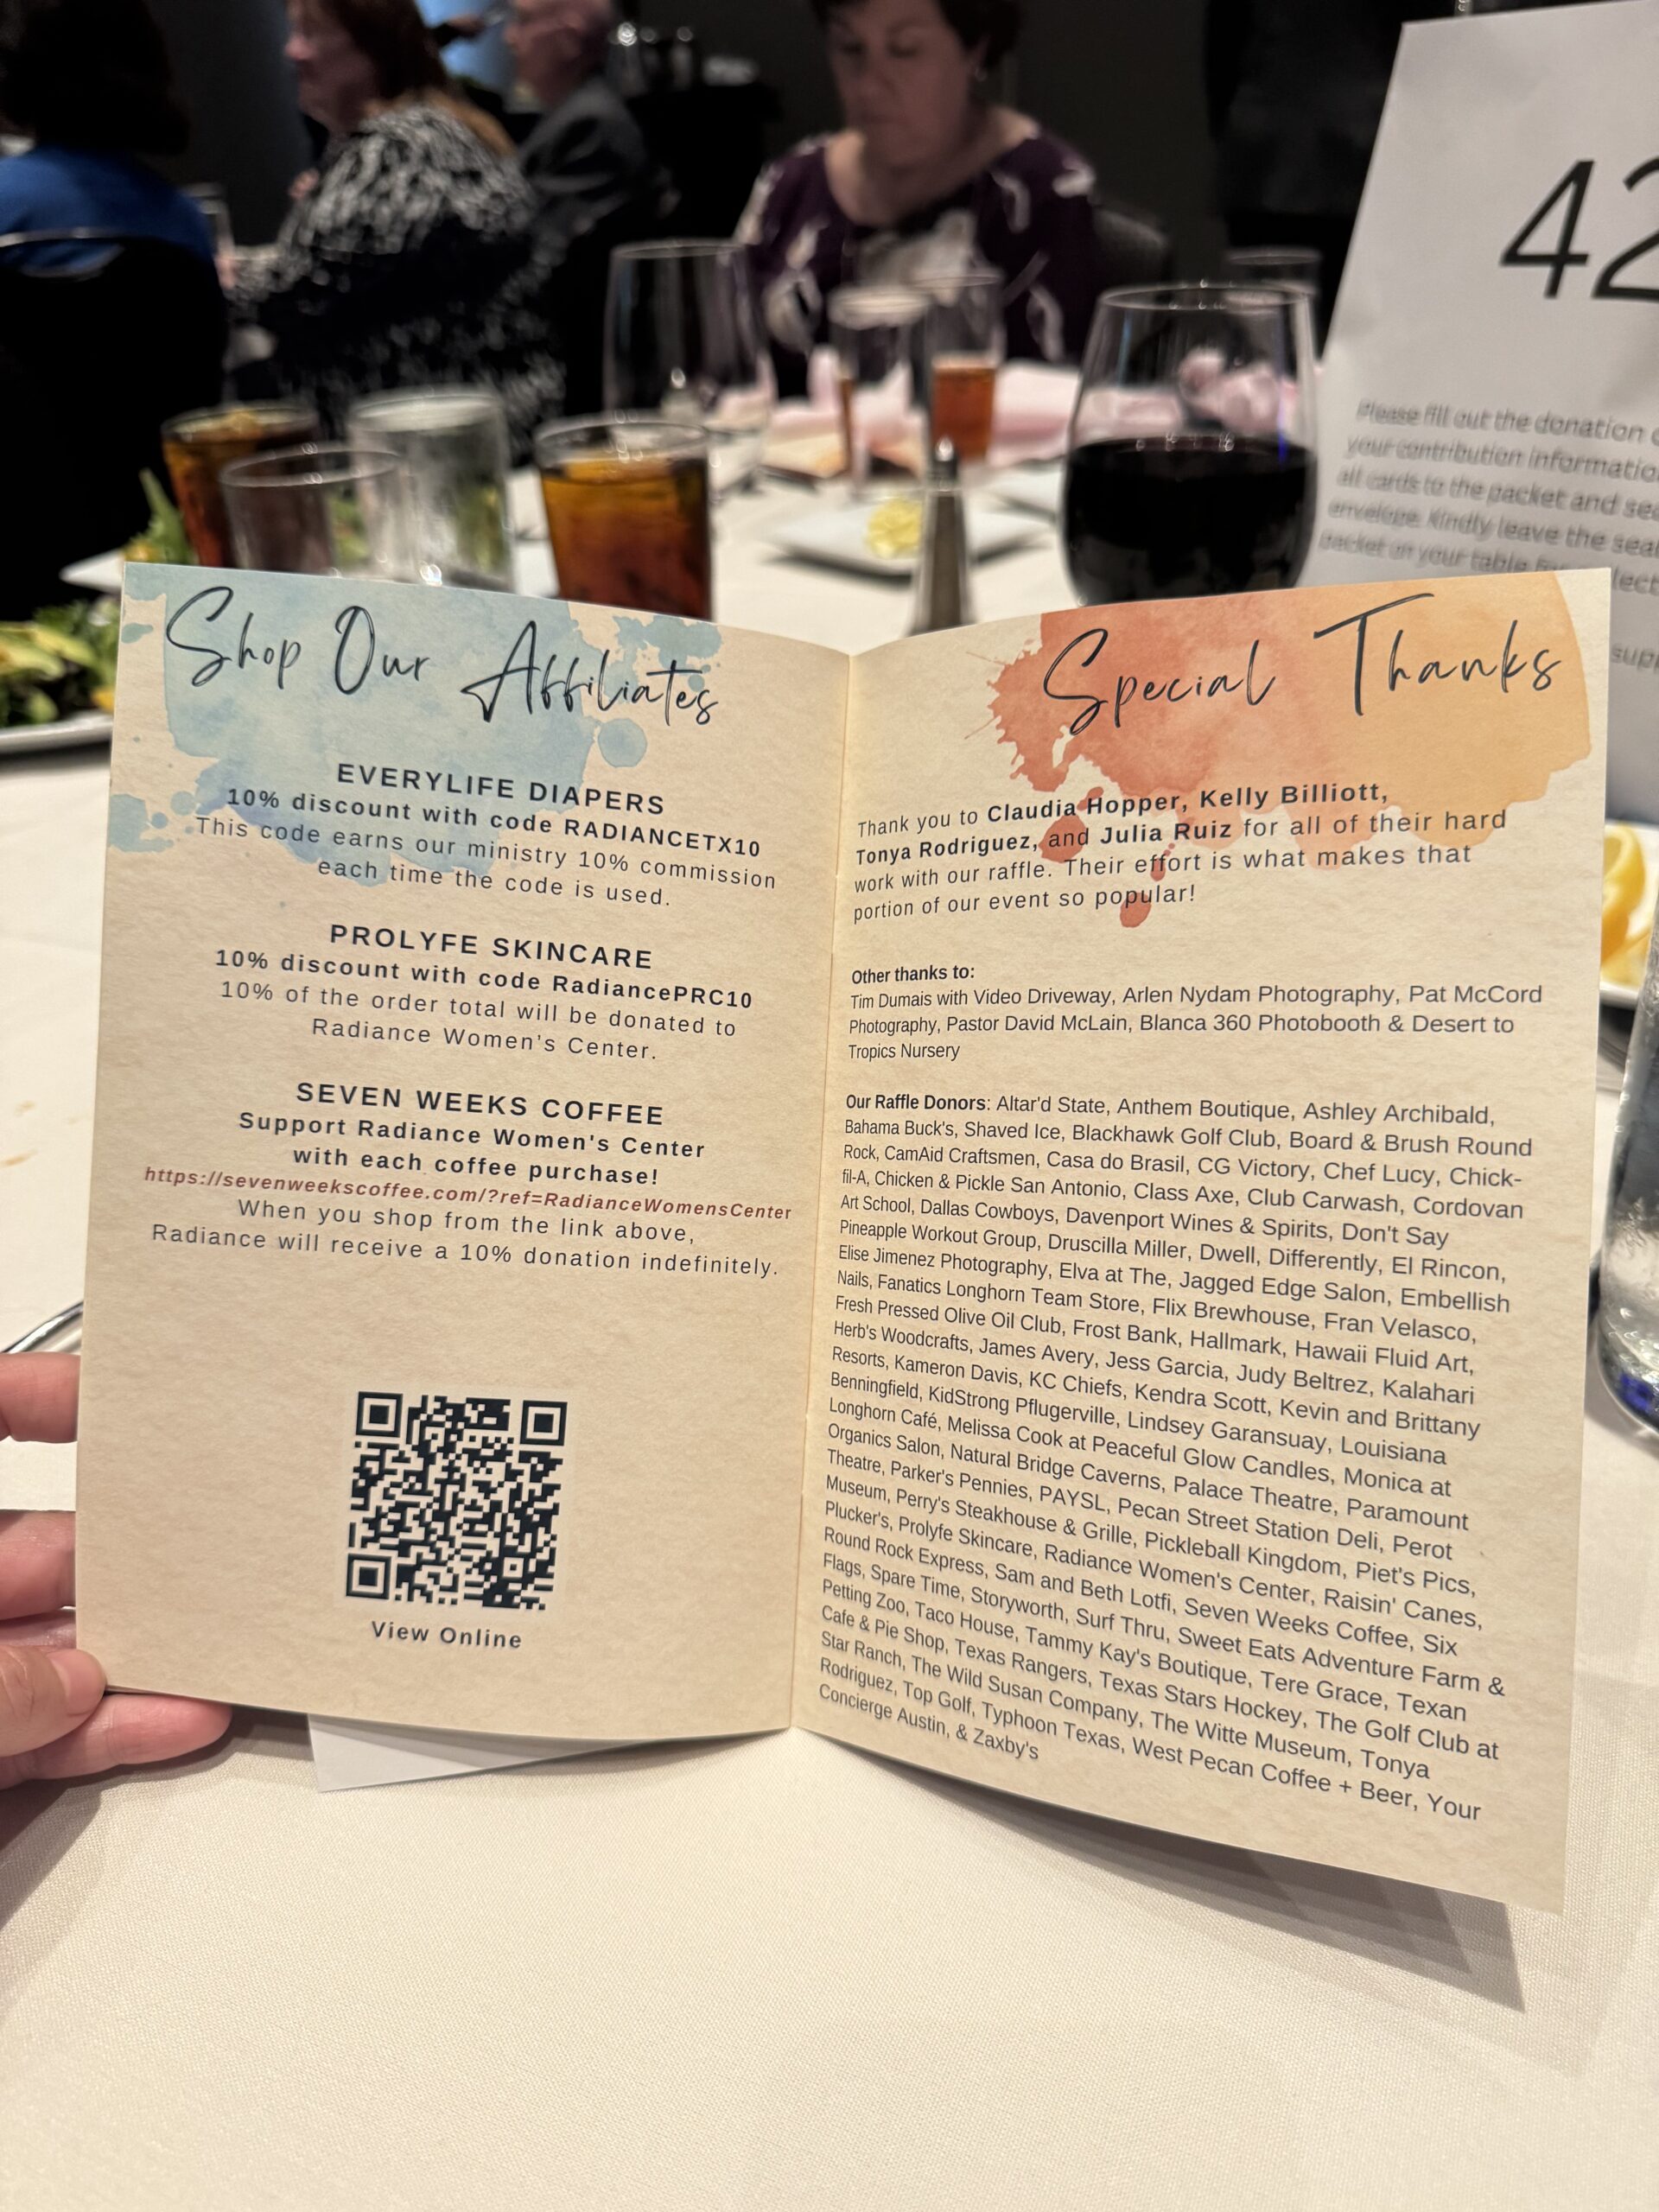 42
Please fill out the donation
your contribution
all cards to the packet and
envelope. Kindly leave the
packet on your table
Shop Our Affiliates
EVERYLIFE DIAPERS
10% discount with code RADIANCETX10
This code earns our ministry 10% commission
each time the code is used.
PROLYFE SKINCARE
10% discount with code RadiancePRC10
10% of the order total will be donated to
Radiance Women's Center.
SEVEN WEEKS COFFEE
Support Radiance Women's Center
with each coffee purchase!
https://sevenweekscoffee.com/?ref=RadianceWomensCenter
When you shop from the link above,
Radiance will receive a 10% donation indefinitely.
View Online
Special Thanks
Thank you to Claudia Hopper, Kelly Billiott,
Tonya Rodriguez, and Julia Ruiz for all of their hard
work with our raffle. Their effort is what makes that
portion of our event so popular!
Other thanks to:
Tim Dumais with Video Driveway, Arlen Nydam Photography, Pat McCord
Photography, Pastor David McLain, Blanca 360 Photobooth & Desert to
Tropics Nursery
Our Raffle Donors: Altar'd State, Anthem Boutique, Ashley Archibald,
Bahama Buck's, Shaved Ice, Blackhawk Golf Club, Board & Brush Round
Rock, CamAid Craftsmen, Casa do Brasil, CG Victory, Chef Lucy, Chick-
fil-A, Chicken & Pickle San Antonio, Class Axe, Club Carwash, Cordovan
Art School, Dallas Cowboys, Davenport Wines & Spirits, Don't Say
Pineapple Workout Group, Druscilla Miller, Dwell, Differently, El Rincon,
Elise Jimenez Photography, Elva at The, Jagged Edge Salon, Embellish
Nails, Fanatics Longhorn Team Store, Flix Brewhouse, Fran Velasco,
Fresh Pressed Olive Oil Club, Frost Bank, Hallmark, Hawaii Fluid Art,
Herb's Woodcrafts, James Avery, Jess Garcia, Judy Beltrez, Kalahari
Resorts, Kameron Davis, KC Chiefs, Kendra Scott, Kevin and Brittany
Benningfield, KidStrong Pflugerville, Lindsey Garansuay, Louisiana
Longhorn Café, Melissa Cook at Peaceful Glow Candles, Monica at
Organics Salon, Natural Bridge Caverns, Palace Theatre, Paramount
Theatre, Parker's Pennies, PAYSL, Pecan Street Station Deli, Perot
Museum, Perry's Steakhouse & Grille, Pickleball Kingdom, Piet's Pics,
Plucker's, Prolyfe Skincare, Radiance Women's Center, Raisin' Canes,
Round Rock Express, Sam and Beth Lotfi, Seven Weeks Coffee, Six
Flags, Spare Time, Storyworth, Surf Thru, Sweet Eats Adventure Farm &
Petting Zoo, Taco House, Tammy Kay's Boutique, Tere Grace, Texan
Cafe & Pie Shop, Texas Rangers, Texas Stars Hockey, The Golf Club at
Star Ranch, The Wild Susan Company, The Witte Museum, Tonya
Rodriguez, Top Golf, Typhoon Texas, West Pecan Coffee + Beer, Your
Concierge Austin, & Zaxby's